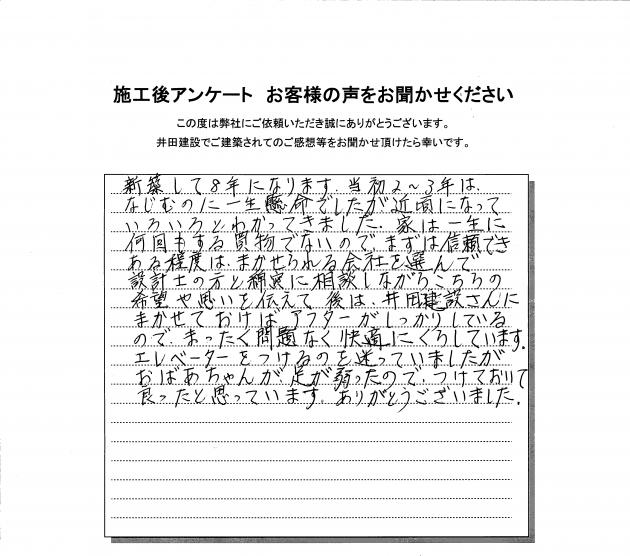 施工後アンケート お客様の声をお聞かせください
この度は弊社にご依頼いただき誠にありがとうございます。
井田建設でご建築されてのご感想等をお聞かせ頂けたら幸いです。
新築して8年になります。当初2～3年は、
なじむのに一生懸命でしたが近頃になって
いろいろとわかってきました。家は一生に
何回もする買物でないので、まずは信頼でき
ある程度は、まかせられる会社を選んで、
設計士の方と綿密に相談しながらこちらの
希望や思いを伝えて、後は、井田建設さんに
まかせておけばアフターがしっかりしている
ので、まったく問題なく快適にくらしています。
エレベーターをつけるのを迷っていましたが
おばあちゃんが足が弱ったので、つけておいて
良ったと思っています。ありがとうございました。